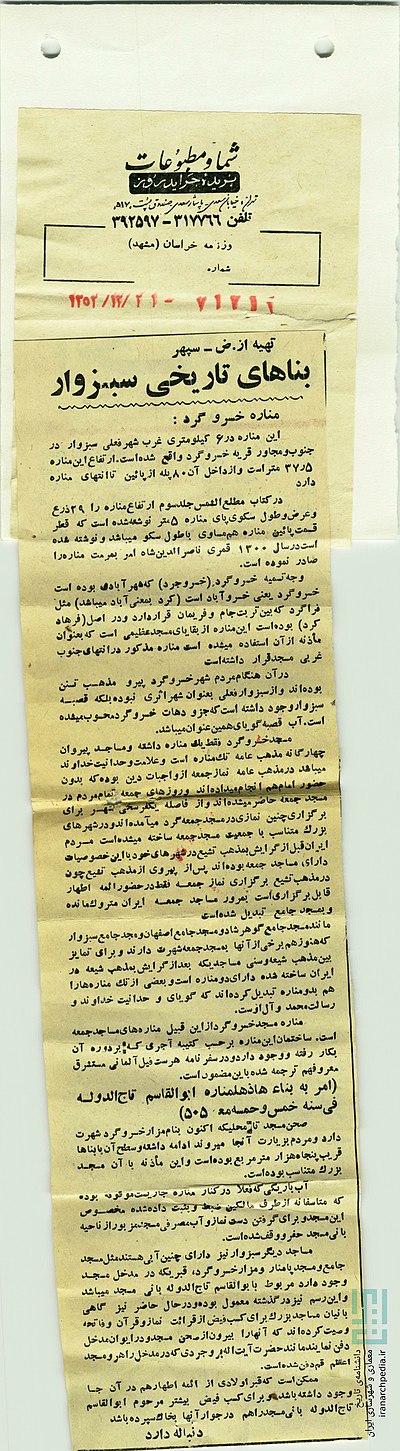 شما و مطبوعات
بریده جراید روز
تلفن ۳۱۷۷۶۶ - ۳۹۲۵۹۷
روزنامه خراسان (مشهد)
شماره
تهیه از.ض ـ سپهر
بناهای تاریخی سبزوار
مناره خسرو گرد :
این مناره در۶ کیلومتری غرب شهرفعلی سبزوار در
جنوب‌ومجاور قریه خسروگرد واقع شده‌است.ارتفاع این‌مناره
۳۷٫۵ متر است وازداخل آن ۸۰پله از پائین تا انتهای مناره
دارد
درکتاب مطلع‌الشمس جلدسوم ارتفاع‌مناره را ۲۹ذرع
وعرض‌وطول سکوی‌پای مناره ۵متر نوشته‌شده است که قطر
قسمت‌پائین مناره هم‌مساوی باطول سکو میباشد و نوشته شده
است‌درسال ۱۳۰۰ قمری ناصرالدین‌شاه امر بمرمت مناره‌را
صادر نموده است.
وجه‌تسمیه خسروگرد.(خسروجرد) که‌شهرآبادی بوده است
خسروگرد یعنی خسروآباد است (کرد بمعنی‌آباد میباشد) مثل
فراگرد که‌بین‌تربت‌جام و فریمان قراردارد ودر اصل(فرهاد
کرد) بوده‌است این‌مناره از بقایای‌مسجدعظیمی است که‌بعنوان
مأذنه ازآن استفاده میشده است مناره مذکور درانتهای‌جنوب
غربی مسجدقرار داشته‌است
درآن هنگام‌مردم شهرخسروگرد پیرو مذهب تسنن
بوده‌اند وازسبزوارفعلی بعنوان شهراثری نبوده بلکه قصبه
سبزوار وجود داشته است‌که‌جزو دهات خسروگردمحسوب‌میشده
است. آب قصبه گویای‌همین‌عنوان‌میباشد.
مسجدخسروگرد فقط‌یك مناره داشته ومساجد پیروان
چهارگانه مذهب عامه تك‌مناره است وعلامت‌وحدانیت‌خداوند
میباشد درمذهب عامه نمازجمعه ازواجبات دین بوده‌که بدون
حضور امام‌هم انجام‌میداده‌اند وروزهای جمعه تمام‌مردم در
مسجد جمعه حاضرمیشده‌اند واز فاصله یکفرسخی شهر برای
برگزاری‌چنین نمازی‌درمسجدجمعه‌گرد میآمده‌اند ودرشهرهای
بزرك متناسب با جمعیت مسجدجمعه ساخته میشده‌است مردم
ایران‌قبل ازگرایش‌بمذهب تشیع درشهرهای‌خود بااین‌خصوصیات
دارای مساجد جمعه بوده‌اند پس‌از پیروی ازمذهب تشیع‌چون
درمذهب‌تشیع برگزاری نماز جمعه فقط‌درحضورائمه اطهار
قابل برگزاری‌است بمرور مساجد جمعه ایران متروك‌مانده
وبمسجد جامع تبدیل شده‌است
مانندمسجدجامع گوهرشاد ومسجدجامع اصفهان‌ومسجدجامع‌سبزوار
که‌هنوزهم برخی‌ازآنها بمسجدجمعه‌شهرت دارند و برای تمایز
بین‌مذهب شیعه‌وسنی مساجدیکه بعدازگرایش‌بمذهب شیعه در
ایران ساخته شده دارای‌دومناره است وبعضی ازتك مناره‌هارا
هم بدومناره تبدیل‌کرده‌اند که گویای و حدانیت خداوند و
رسالت‌محمد وآل‌اوست.
مناره مسجدخسروگرد ازاین قبیل مناره‌های‌مساجدجمعه
است. ساختمان‌این‌مناره برحسب کتیبه آجری که بردوره آن
بکار رفته و وجود دارد ودرسفرنامه هرست‌فیل آلمانی مستشرق
معروفهم ترجمه شده باین‌مضمون‌است.
(امر به بناء هاذهلمناره ابوالقاسم تاج‌الدوله
فی‌سنه خمس‌وحمسمع: ۵۰۵)
صحن‌مسجد تامحلیکه اکنون بنام‌مزارخسروگرد شهرت
دارد ومردم‌بزیارت آنجا میروند ادامه داشته‌وسطح‌آن‌بابناها
قریب‌پنجاه‌هزار مترمربع بوده‌است واین مأذنه با آن مسجد
بزرك متناسب‌بوده‌است.
آب‌باریکی‌که‌فعلا درکنار مناره جاریست‌موقوفه بوده
که متاسفانه ازطرف مالکین ضبط وبثبت داده‌شده مخصوص
این‌مسجد وبرای‌گرفتن دست‌نماز وآب‌مصرفی مسجدمزبور ازناحیه
بانی‌مسجد حفرووقف‌شده‌است.
مساجد دیگرسبزوارنیز دارای چنین‌آبی‌هستند مثل‌مسجد
جامع‌ومسجدپامنار ومزارخسروگرد، قبریکه در مدخل مسجد
وجود دارد مربوط باابوالقاسم تاج‌الدوله بانی مسجد میباشد
واین‌رسم نیز درگذشته معمول بوده ودرحال حاضر نیز گاهی
بانیان مساجدبزرك برای‌کسب‌فیض از قرائت نمازوقرآن وفاتحه
وصیت‌کرده‌اند که آنهارا بیرون‌ازصحن مسجدودرایوان‌مدخل
دفن نمایندمانند حضرت آیت‌اله بروجردی که‌درمدخل‌راهرومسجد
اعظم قم‌دفن شده‌است.
ممکن‌است که‌قبراولادی از ائمه اطهارهم در آن جا
وجود داشته باشد وبرای‌کسب‌فیض بیشتر مرحوم ابوالقاسم
تاج‌الدوله بانی‌مسجدراهم درجوارآنها بخاك‌سپرده باشد
دنباله دارد
دانشنامه‌ی تاریخ
معماری و شهرسازی ایران
iranarchpedia.ir